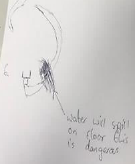 water will spill
on floor this
is dangerous